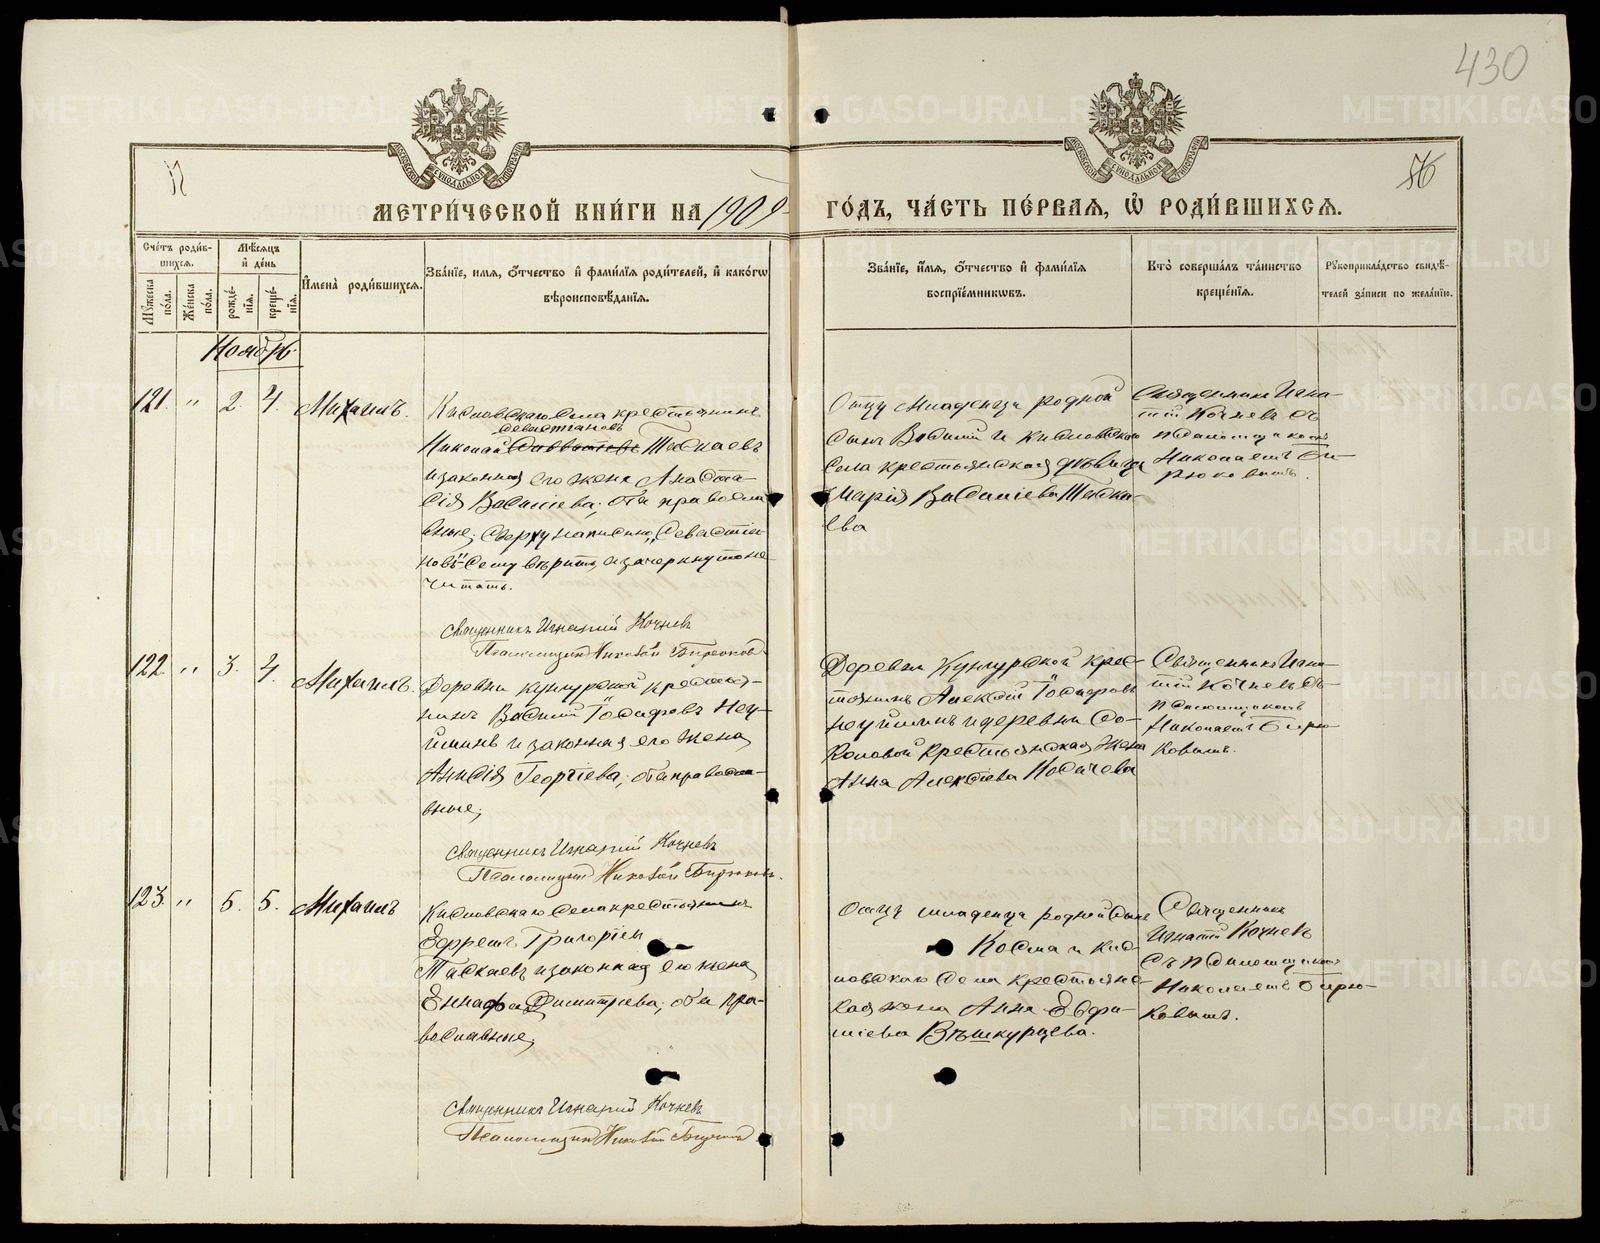 430
МЕТРИ́ЧЕСКОЙ КНИ́ГИ НА 1909 ГО́ДЪ, ЧА́СТЬ ПЕ́РВАЯ, Ѡ РОДИ́ВШИХСЯ.
Сче́тъ роди́в-
шихся.
Мѣ́сяцъ
и де́нь
Му́жеска
по́ла.
Же́нска
по́ла.
рожде́-
нія.
креще́-
нія.
Имена̀ роди́вшихся.
Зва́ніе, имя, о́тчество и фами́лія роди́телей, и како́гѡ
вѣроисповѣ́данія.
Зва́ніе, и́мя, о́тчество и фами́лія
воспріе́мниковъ.
Кто̀ соверша́лъ та́инство
креще́нія.
Рукоприкла́дство свидѣ́-
телей за́писи по жела́нію.
Ноябрь
121. " 2. 4. Михаилъ.
Кисловскаго села крестьянинъ
Севастіановъ
Николай Тискаевъ
и законная его жена Анаста-
сія Василіева; оба православ-
ные; сверху написано „Севастіа-
новъ" сему вѣрить, а зачеркнутое не
читать.
Священникъ Игнатій Кочневъ
Псаломщик Николай Бирюков
Отцу младенца родной
сынъ Василій и Кисловскаго
села крестьянская дѣвица
Марія Василіева Тиска-
ева
Священникъ Игна-
тій Кочневъ съ
псаломщикомъ
Николаемъ Би-
рюковымъ.
122. " 3. 4. Михаилъ.
Деревни Кунгурской крестья-
нинъ Василій Іосифовъ Неу-
йминъ и законная его жена
Анисія Георгіева; оба православ-
ные;
Священникъ Игнатій Кочневъ
Псаломщик Николай Бирюков.
Деревни Кунгурской крес-
тьянинъ Алексій Іосифовъ
Неуйминъ и деревни Со-
коловой крестьянская жена
Анна Алексіева Косачева
Священникъ Игна-
тій Кочневъ съ
псаломщикомъ
Николаемъ Бирю-
ковымъ.
123. " 5. 5. Михаилъ
Кисловскаго села крестьянинъ
Ефремъ Григоріевъ
Тискаевъ и законная его жена
Еннафа Димитріева; оба пра-
вославные;
Священникъ Игнатій Кочневъ
Псаломщик Николай Бирюков
Отцу младенца родной сынъ
Косма и Кис-
ловскаго села крестьянс-
кая жена Анна Евфи-
міева Вѣшкурцева.
Священникъ
Игнатій Кочневъ
съ псаломщикомъ
Николаемъ Бирю-
ковымъ.
METRIKI.GASO-URAL.RU